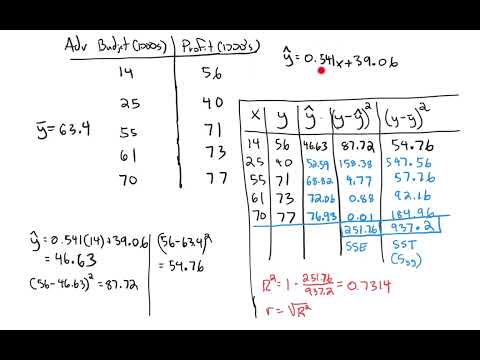 Adv Budget (1000s) Profit (1000's)
14 56
25 40
55 71
61 73
70 77
ȳ = 63.4
ŷ = 0.541x + 39.06
x y ŷ (y-ŷ)² (y-ȳ)²
14 56 46.63 87.72 54.76
25 40 52.59 158.38 547.56
55 71 68.82 4.77 57.76
61 73 72.06 0.88 92.16
70 77 76.93 0.01 184.96
251.76 937.2
SSE SST
(Syy)
ŷ = 0.541(14) + 39.06
= 46.63
(56-46.63)² = 87.72
(56-63.4)²
= 54.76
R² = 1 - 251.76/937.2 = 0.7314
r = √R²